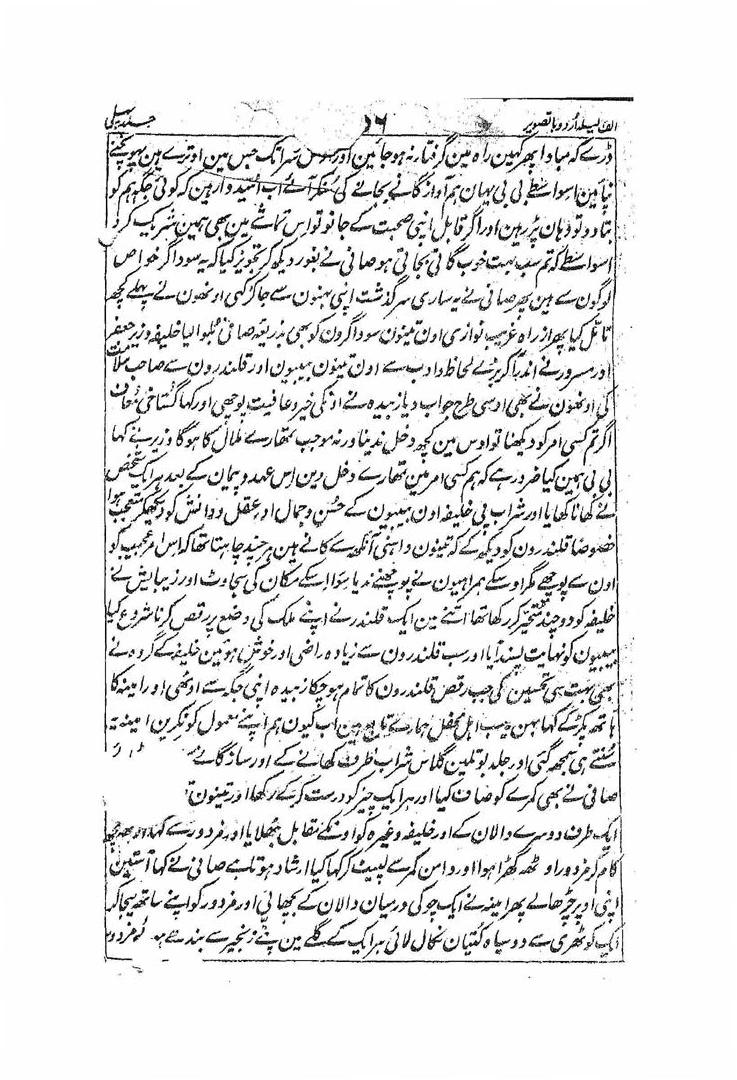 الف لیلہ اُردو باتصویر ۱۶ جلد پہلی
ڈرے کہ مبادا پھر کہین راہ مین گرفتار نہ ہو جائین اور سرا تک جس مین اوترے ہین پہونچنے
نپائین اسواسطے بی بی یہان ہم آواز گانے بجانے کی سُنکر آئے اب اُمیدوار ہین کہ کوئی جگہ ہم کو
بتا دو تو وہان پڑ رہین اور اگر قابل اپنی صحبت کے جانو تو اس تماشے مین بھی ہمین شریک کرو
اسواسطے کہ تم سب بہت خوب گاتی بجاتی ہو صافی نے بغور دیکھ کر تجویز کیا کہ یہ سوداگر خواص
لوگون سے ہین پھر صافی نے یہ ساری سرگذشت اپنی بہنون سے جاکر کہی اونھون نے پہلے کچھ
تامّل کیا پھر از راہ غریب نوازی اون تینون سوداگرون کو بھی بذریعہ صافی بُلوا لیا خلیفہ وزیر جعفر
اور مسرور نے اندر آکر بڑے لحاظ و ادب سے اون تینون بیبیون اور قلندرون سے صاحب سلامت
کی اونھون نے بھی اوسی طرح جواب دیا زبیدہ نے اونکی خیر و عافیت پوچھی اور کہا گستاخی معاف
اگر تم کسی امر کو دیکھنا تو اوس مین کچھ دخل ندینا ورنہ موجب تمھارے ملال کا ہوگا وزیر نے کہا
بی بی ہمین کیا ضرور ہے کہ ہم کسی امر مین تمھارے دخل دین اس عہد و پیمان کے بعد ہر ایک شخص
نے کھانا کھایا اور شراب پی خلیفہ اون بیبیون کے حُسن و جمال اور عقل و دانش کو دیکھکر متعجب ہوا
خصوصًا قلندرون کو دیکھ کے کہ تینون داہنی آنکھ سے کانے ہین ہر چند چاہتا تھا کہ اس امر عجیب کو
اون سے پوچھے مگر اوسکے ہمراہیون نے پوچھنے ندیا سوا اسکے مکان کی سجاوٹ اور زیبایش نے
خلیفہ کو دوچند متحیر کر رکھا تھا اتنے مین ایک قلندر نے اپنے ملک کی وضع پر رقص کرنا شروع کیا
بیبیون کو نہایت پسند آیا اور سب قلندرون سے زیادہ راضی اور خوش ہوئین خلیفہ کے گروہ نے
بھی بہت ہی تحسین کی جب رقص قلندرون کا تمام ہو چکا زبیدہ اپنی جگہ سے اوٹھی اور امینہ کا
ہاتھ پکڑ کے کہا بہن سب اہل محفل ہمارے تابع ہین اب کیون ہم اپنے معمول کو نکرین امینہ یہ
سُنتے ہی سمجھ گئی اور جلد بوتلین گلاس شراب ظرف کھانے کے اور ساز گانے
صافی نے بھی کمرے کو صاف کیا اور ہر ایک چیز کو درست کر کے رکھا اور تینون
ایک طرف دوسرے دالان کے اور خلیفہ وغیرہ کو اونکے مقابل بٹھلایا اور مزدور سے کہا
کام کر مزدور اوٹھ کھڑا ہوا اور دامن کمر سے لپیٹ کر کہا کیا ارشاد ہوتا ہے صافی نے کہا آستین
اپنی اوپر چڑھالے پھر امینہ نے ایک چوکی درمیان دالان کے بچھائی اور مزدور کو اپنے ساتھ لیجا کر
ایک کوٹھری سے دو سیاہ کتیان نکال لائی ہر ایک کے گلے مین پٹے زنجیر سے بندھے مزدور